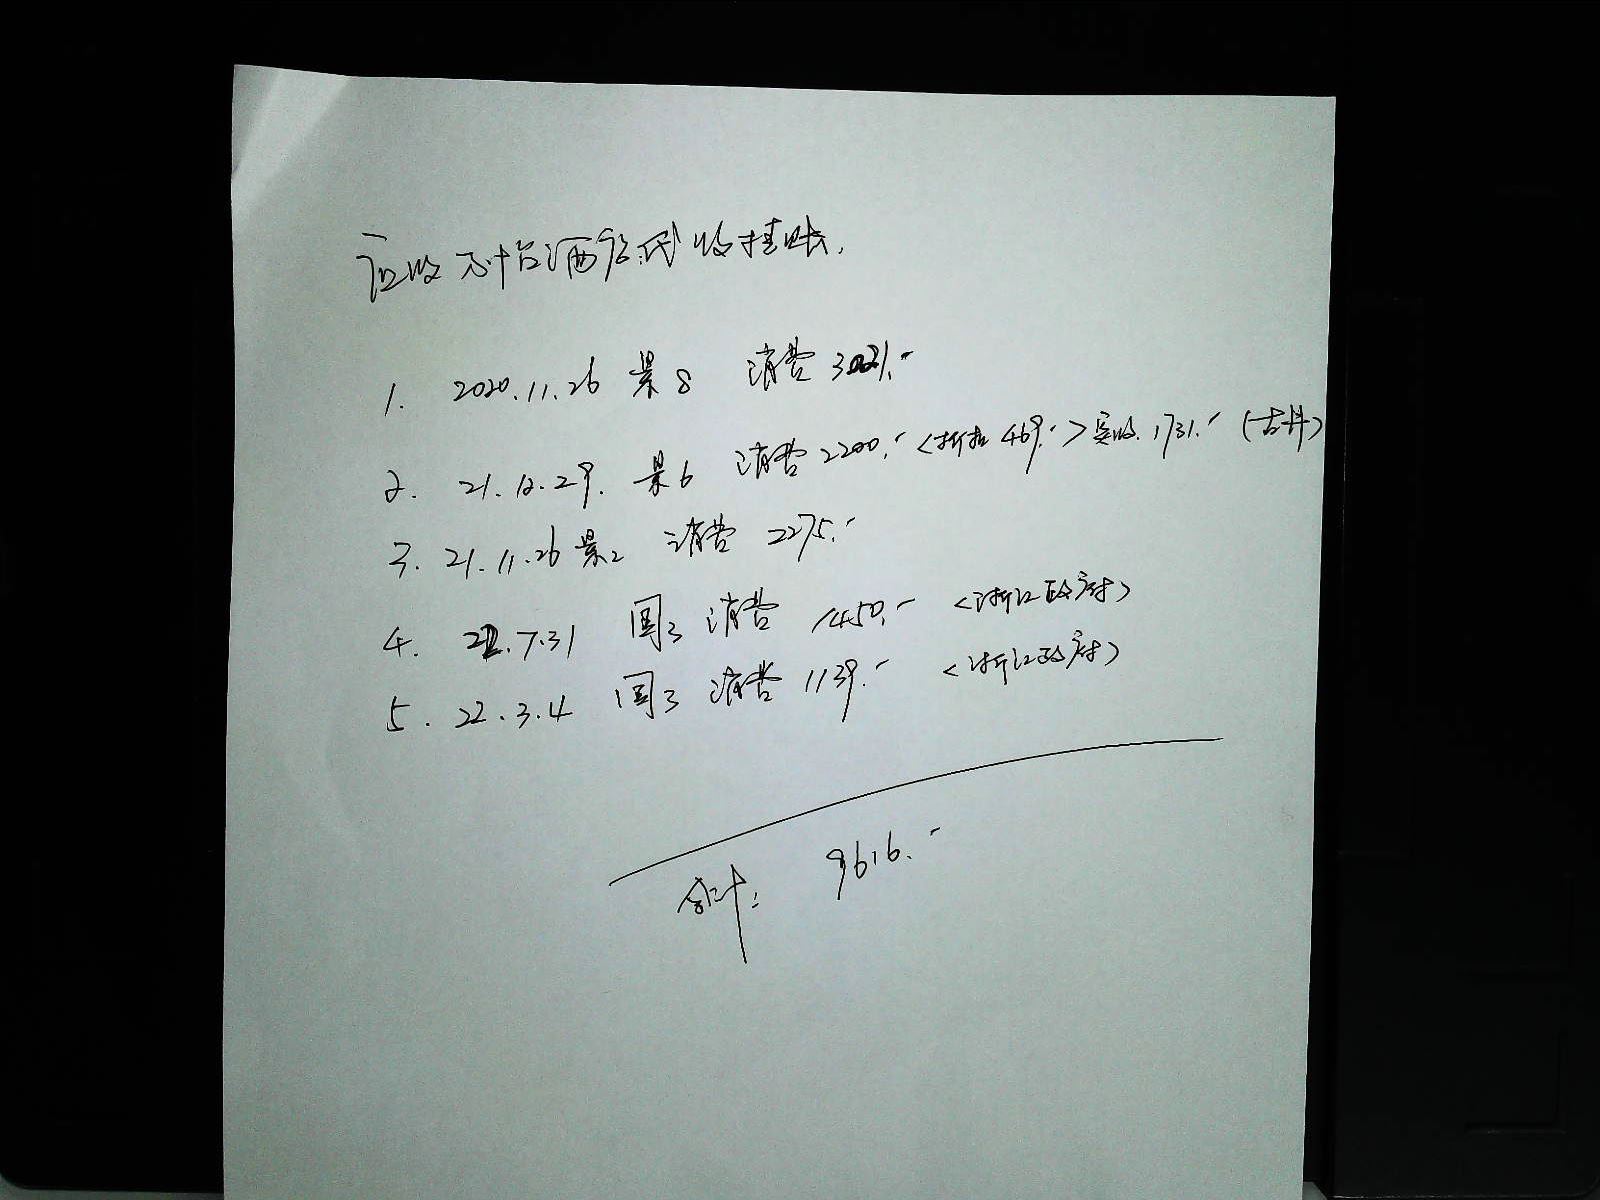 应收天怡酒店代收挂账.
1. 2020.11.26 景8 消费 3021.-
2. 21.12.29. 景6 消费 2200.- <折扣 469.-> 实收. 1731.- (古井)
3. 21.11.26 景2 消费 2275.-
4. 22.7.31 国3 消费 1450.- <浙江政府>
5. 22.3.4 国3 消费 1139.- <浙江政府>
合计: 9616.-